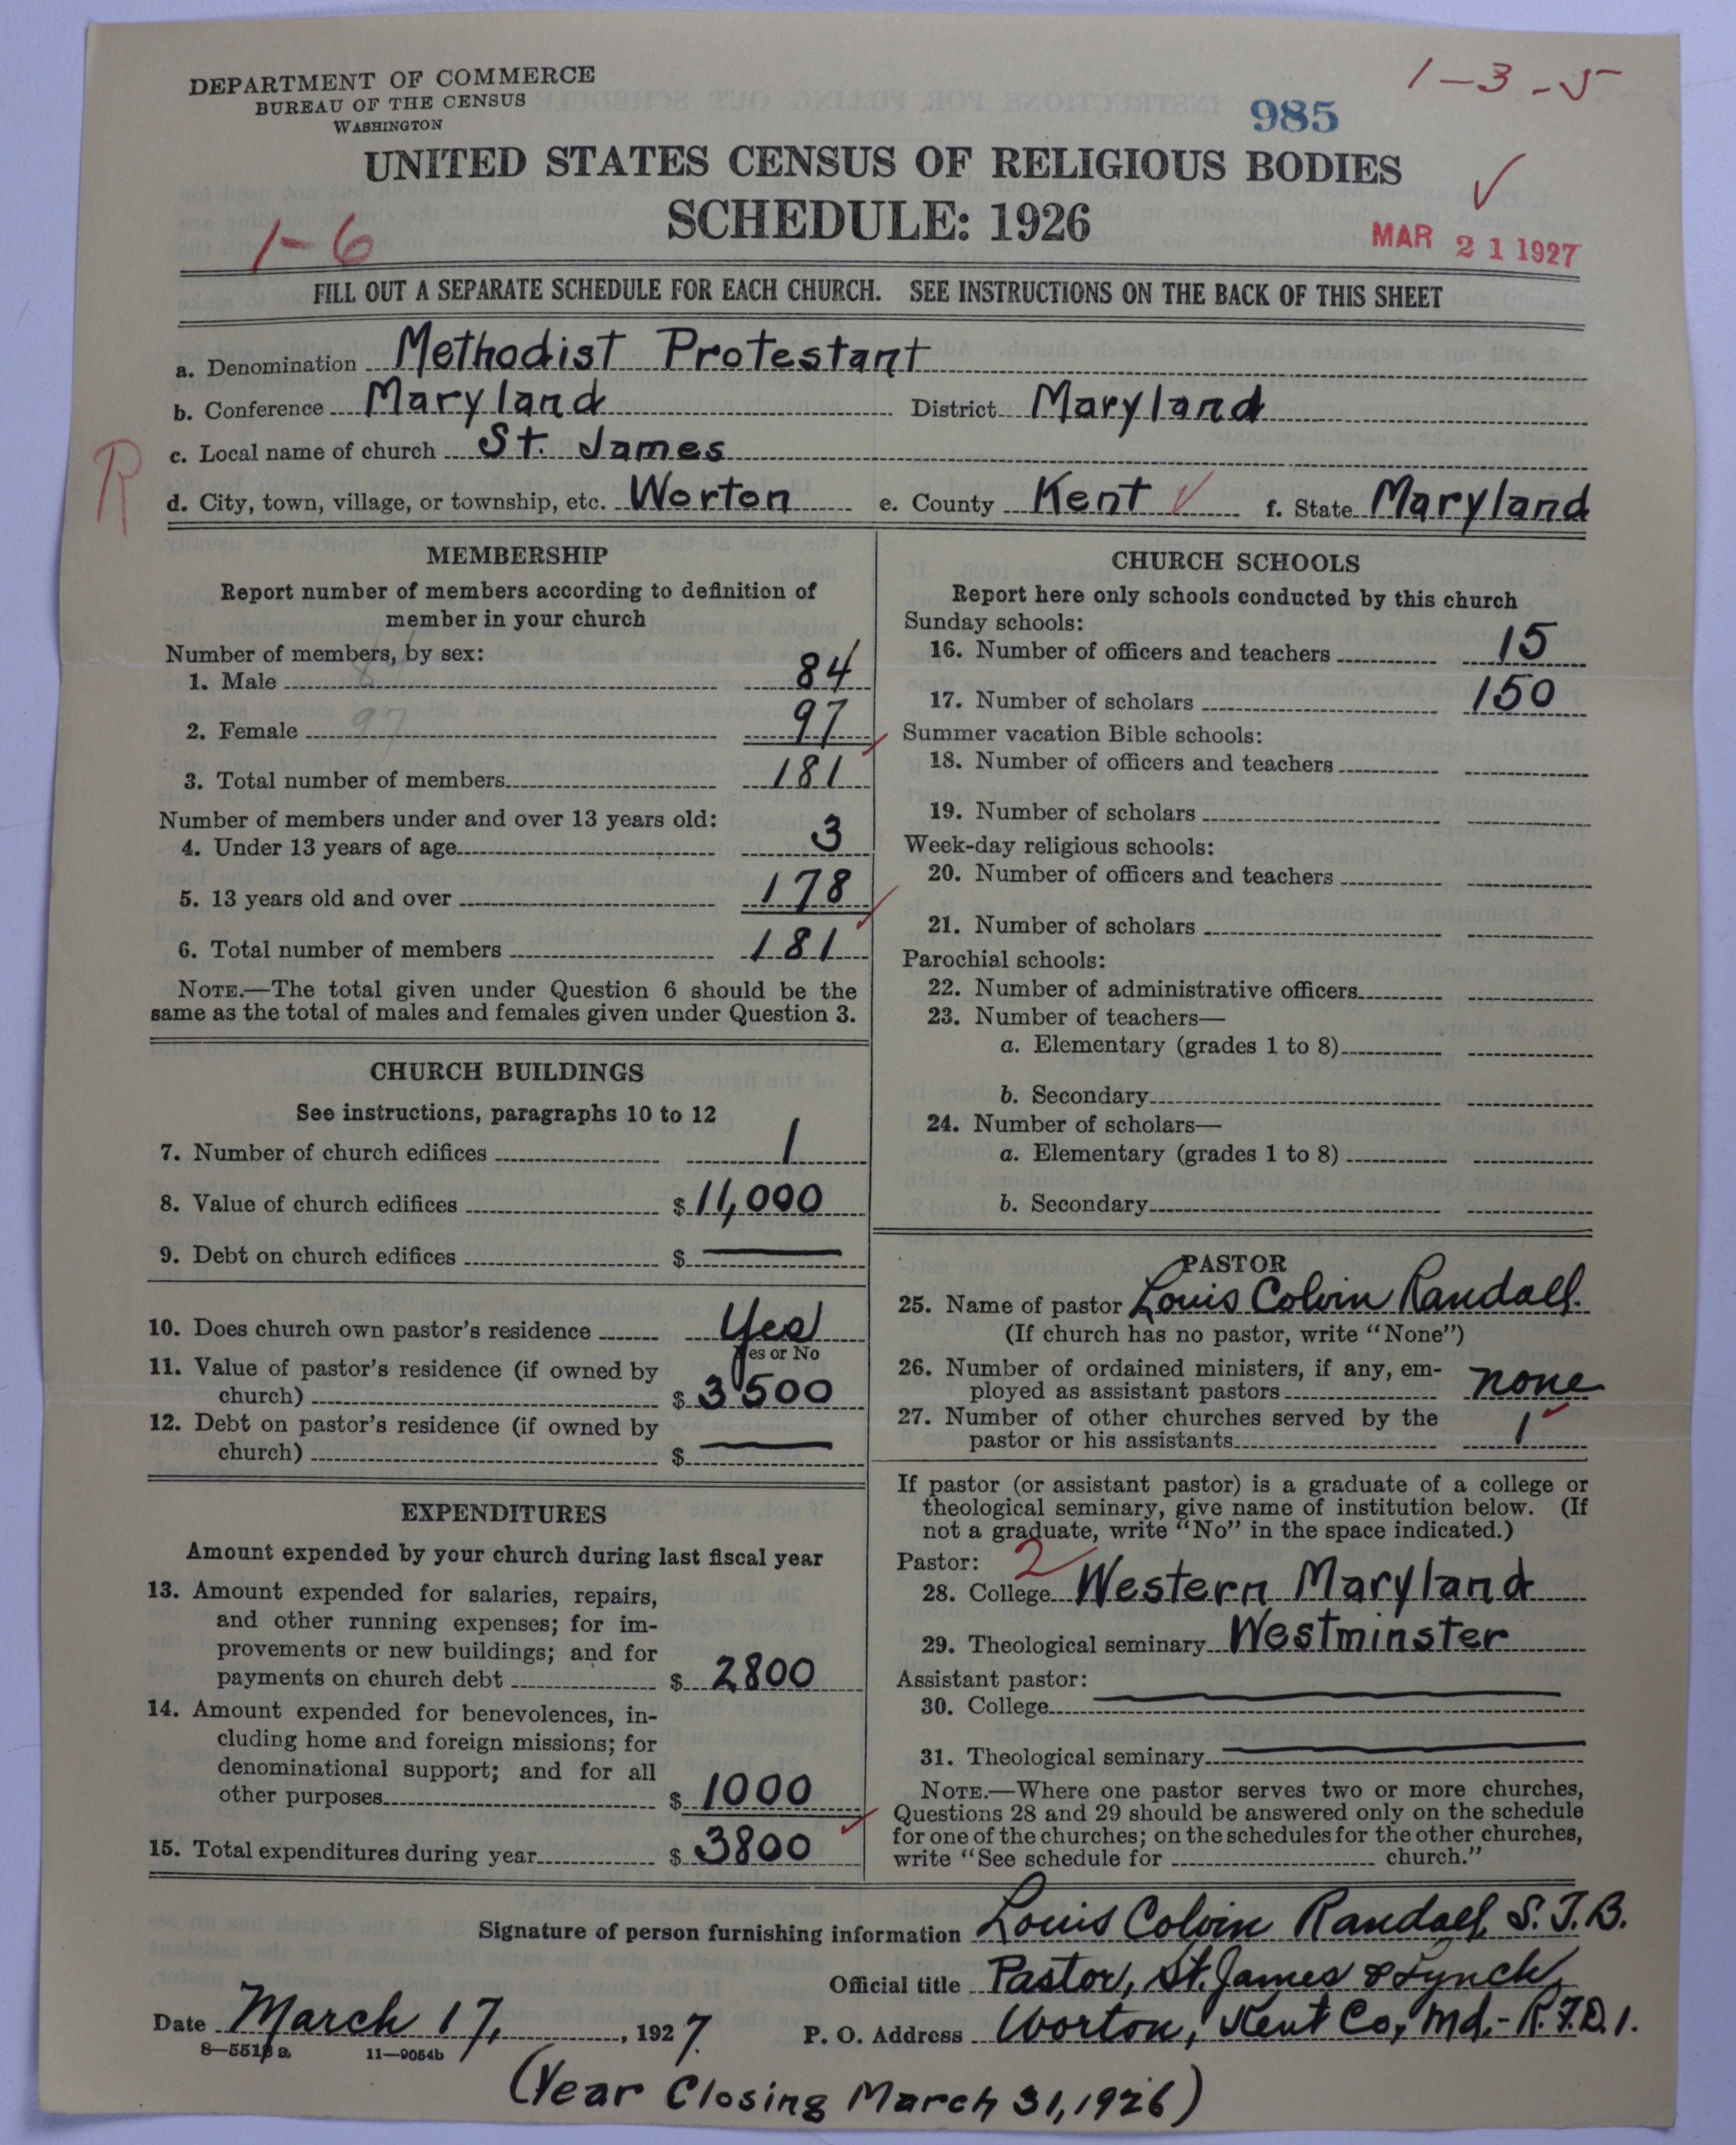 DEPARTMENT OF COMMERCE
BUREAU OF THE CENSUS
WASHINGTON
1-3-5
985
UNITED STATES CENSUS OF RELIGIOUS BODIES
SCHEDULE: 1926
1-6
MAR 21 1927
FILL OUT A SEPARATE SCHEDULE FOR EACH CHURCH. SEE INSTRUCTIONS ON THE BACK OF THIS SHEET
a. Denomination Methodist Protestant
b. Conference Maryland District Maryland
R
c. Local name of church St. James
d. City, town, village, or township, etc. Worton e. County Kent f. State Maryland
MEMBERSHIP
Report number of members according to definition of
member in your church
Number of members, by sex:
1. Male 84 84
2. Female 97 97
3. Total number of members 181
Number of members under and over 13 years old:
4. Under 13 years of age 3
5. 13 years old and over 178
6. Total number of members 181
NOTE.—The total given under Question 6 should be the
same as the total of males and females given under Question 3.
CHURCH BUILDINGS
See instructions, paragraphs 10 to 12
7. Number of church edifices 1
8. Value of church edifices $ 11,000
9. Debt on church edifices $
10. Does church own pastor's residence Yes
Yes or No
11. Value of pastor's residence (if owned by
church) $ 3500
12. Debt on pastor's residence (if owned by
church) $
EXPENDITURES
Amount expended by your church during last fiscal year
13. Amount expended for salaries, repairs,
and other running expenses; for im-
provements or new buildings; and for
payments on church debt $ 2800
14. Amount expended for benevolences, in-
cluding home and foreign missions; for
denominational support; and for all
other purposes $ 1000
15. Total expenditures during year $ 3800
CHURCH SCHOOLS
Report here only schools conducted by this church
Sunday schools:
16. Number of officers and teachers 15
17. Number of scholars 150
Summer vacation Bible schools:
18. Number of officers and teachers
19. Number of scholars
Week-day religious schools:
20. Number of officers and teachers
21. Number of scholars
Parochial schools:
22. Number of administrative officers
23. Number of teachers—
a. Elementary (grades 1 to 8)
b. Secondary
24. Number of scholars—
a. Elementary (grades 1 to 8)
b. Secondary
PASTOR
25. Name of pastor Louis Colvin Randall.
(If church has no pastor, write "None")
26. Number of ordained ministers, if any, em-
ployed as assistant pastors none
27. Number of other churches served by the
pastor or his assistants 1
If pastor (or assistant pastor) is a graduate of a college or
theological seminary, give name of institution below. (If
not a graduate, write "No" in the space indicated.)
Pastor: 2
28. College Western Maryland
29. Theological seminary Westminster
Assistant pastor:
30. College
31. Theological seminary
NOTE.—Where one pastor serves two or more churches,
Questions 28 and 29 should be answered only on the schedule
for one of the churches; on the schedules for the other churches,
write "See schedule for church."
Signature of person furnishing information Louis Colvin Randall, S.T.B.
Official title Pastor, St. James & Lynch,
Date March 17, 1927. P. O. Address Worton, Kent Co, Md.- R.F.D. 1.
8—5518 a 11—9054b
(Year Closing March 31, 1926)